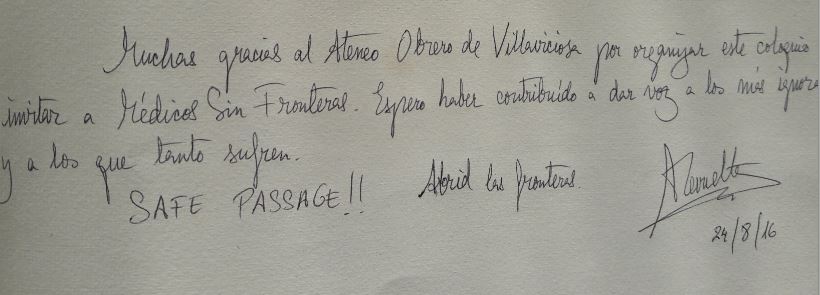 Muchas gracias al Ateneo Obrero de Villaviciosa por organizar este coloquio
invitar a Médicos Sin Fronteras. Espero haber contribuído a dar voz a los más ignora
y a los que tanto sufren.
SAFE PASSAGE!! Abrid las fronteras.
24/8/16